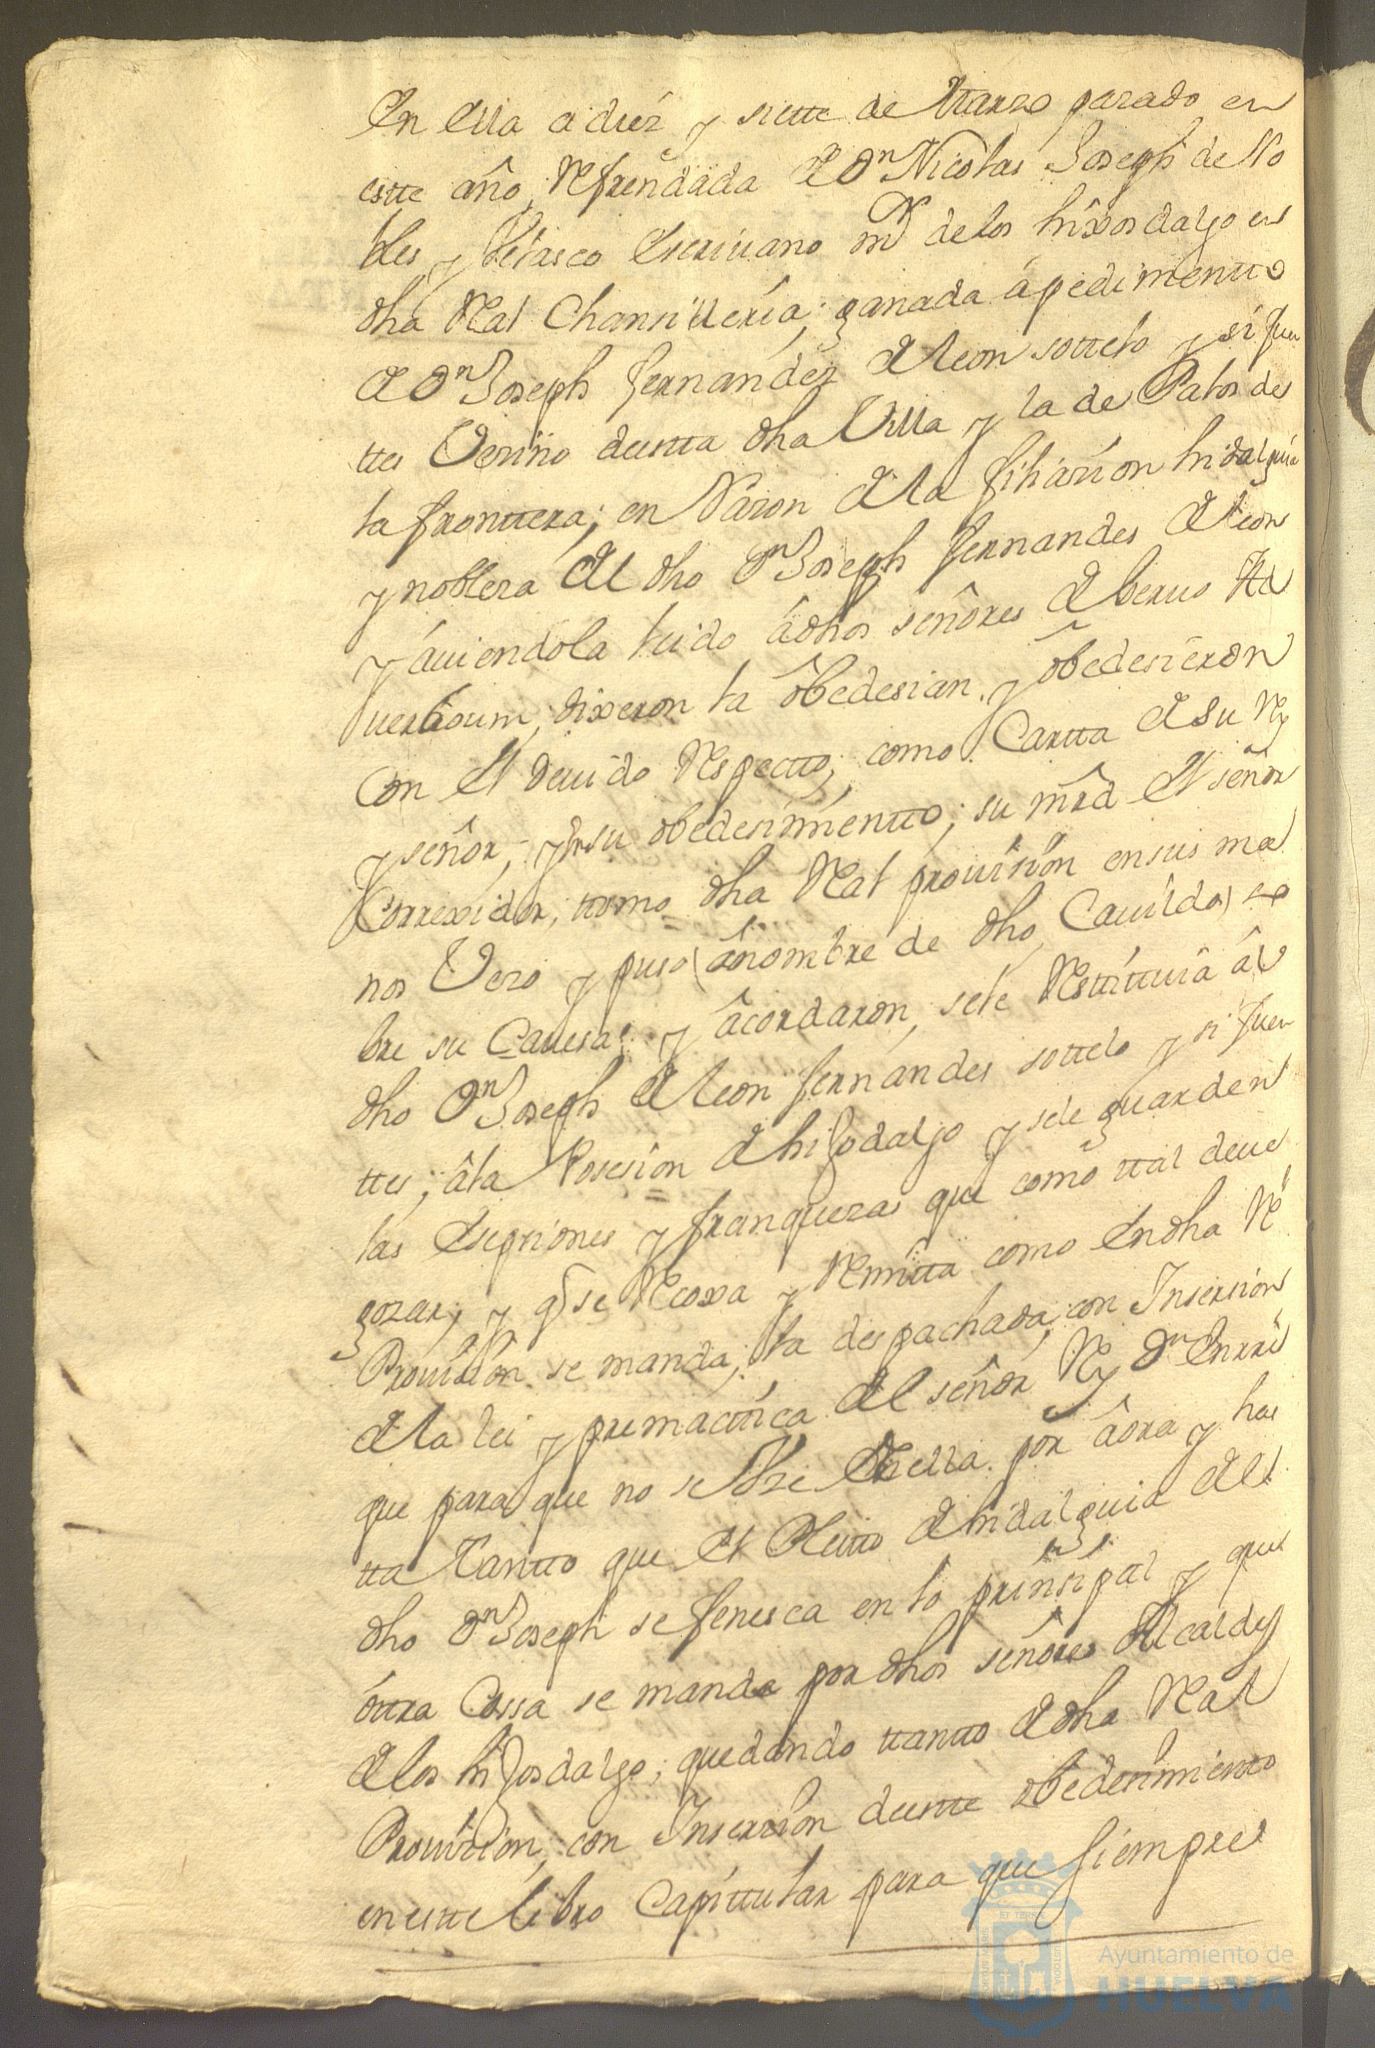 En ella a diez y siette de Marzo pasado en
estte año, Refrendada de Dn Nicolas Joseph de No
bles y Velasco escriuano mr de los hixosdalgo en
dha Real Chansillería; ganada á pedimentto
de Dn Joseph fernández de leon sottelo y sifuen
ttes Vezino de estta dha Villa y la de Palos de
la fronttera; en Razon de la filiazion hidalguia
y nobleza del dho Dn Joseph fernandes de leon
y áuiendola leido a dhos señores de beruo Ad
uerboum, dixeron la obedesian y obedesieron
Con el deuido Respectto; como Cartta de su Rey
y señor, y en su obedesimientto; su mrd el señor
Correxidor; ttomo dha Real prouision en sus ma
nos Veso y puso (a nombre de dho Cauildo) so
bre su Cauesa: y acordaron, sele Restittuia al
dho Dn Joseph de leon fernandes sottelo y sifuen
ttes; a la Posesion de hijodalgo y sele guarden
las esepsiones y franquezas que como ttal deue
gozar; y q se Recoxa y Remitta como en dha Rl
Prouision se manda; la despachada con Insersion
de la lei y premacttica del señor Rey Dn Enrri
que para que no se Vse de ella por aora y has
tta Tantto que el Pleitto de hidalguia del
dho Dn Joseph se fenesca en lo prinsipal y que
ottra Cossa se manda por dhos señores Alcaldes
de los hijosdalgo; quedando ttantto de dha Real
Prouision, con Insersion de estte obedesimiento
en estte libro Capittular para que siempre
Ayuntamiento de
HUELVA